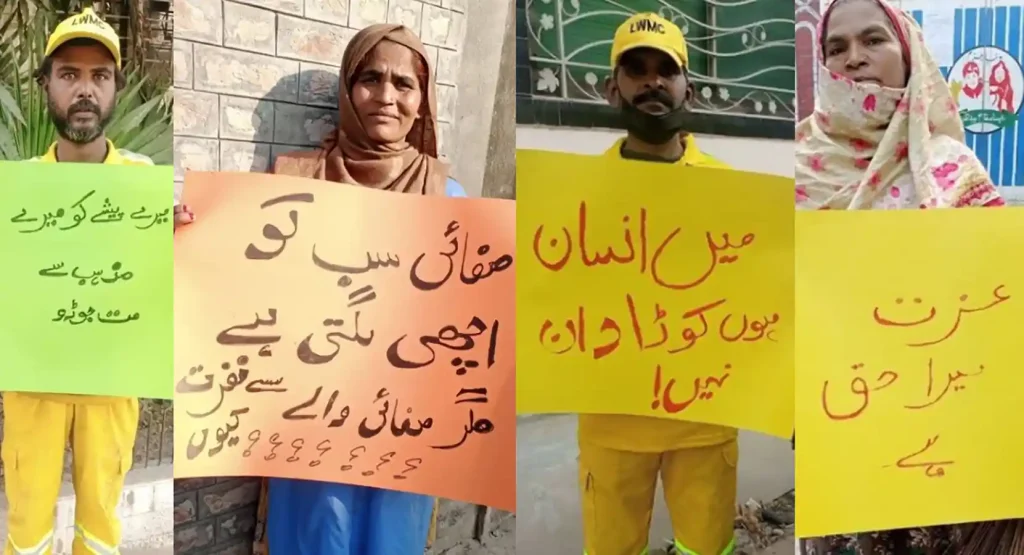 LWMC
میرے پیشے کو میرے
مذہب سے
مت جوڑو
صفائی سب کو
اچھی لگتی ہے
مگر صفائی والے سے نفرت
کیوں ؟؟؟؟؟؟؟؟
LWMC
میں انسان
ہوں کوڑا دان
نہیں!
عزت
میرا حق
ہے